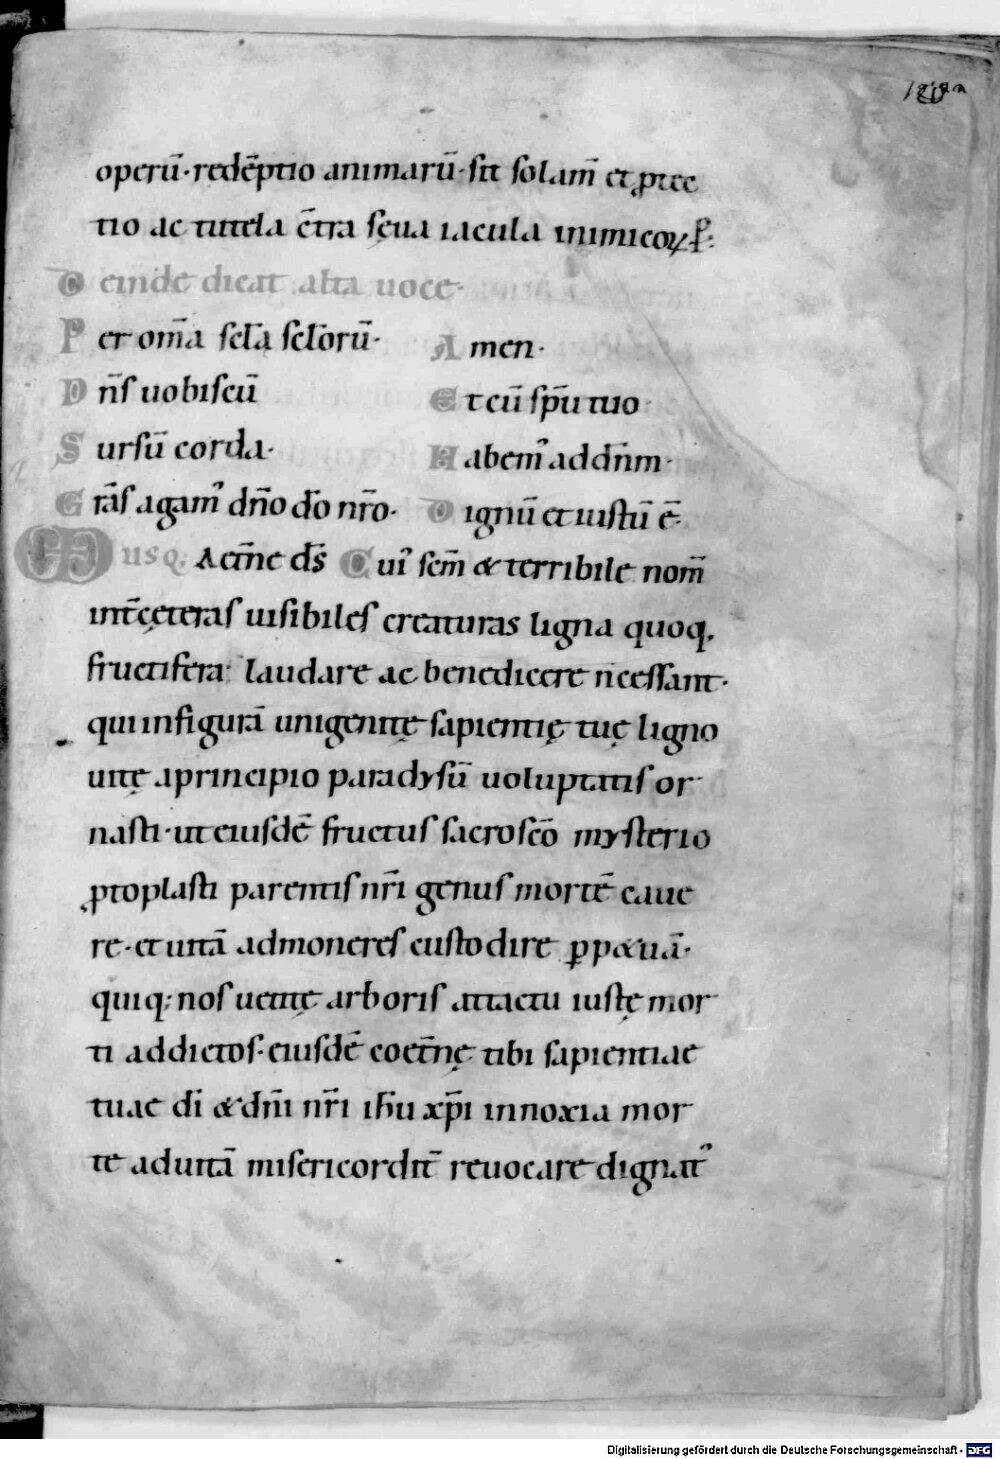 operū·redēptio animarū·sit solam̄ et ꝓtec
tio ac tutela c̄tra sęua iacula inimicoꝝ·ꝑ·
Deinde dicat alta uoce·
Per om̄a scl̄a scl̄orū· Amen·
Dn̄s uobiscū Et cū sp̄u tuo·
Sursū corda· Habem᾽ ad dn̄m·
Gr̄as agam᾽ dn̄o dō nr̄o· Dignū et iustū ē·
Usq; Aet̄ne ds̄ Cui᾽ scm̄ & terribile nom̄
int̄ cęteras uisibiles creaturas ligna quoq,
fructifera· laudare ac benedicere n̄ cessant·
qui in figurā unigenitę sapientię tuę ligno
uitę a principio paradysū uoluptatis or
nasti·ut eiusdē fructus sacroscō mysterio
ꝓtoplasti parentis nr̄i genus mortē caue
re·et uitā admoneres custodire ꝑp&uā·
quiq; nos uetitę arboris attactu iustę mor
ti addictos·eiusdē coet̄nę tibi sapientiae
tuae dī & dn̄i nr̄i ih̄u xp̄i innoxia mor
te ad uitā misericordit̄ reuocare dignat᾽
Digitalisierung gefördert durch die Deutsche Forschungsgemeinschaft - DFG